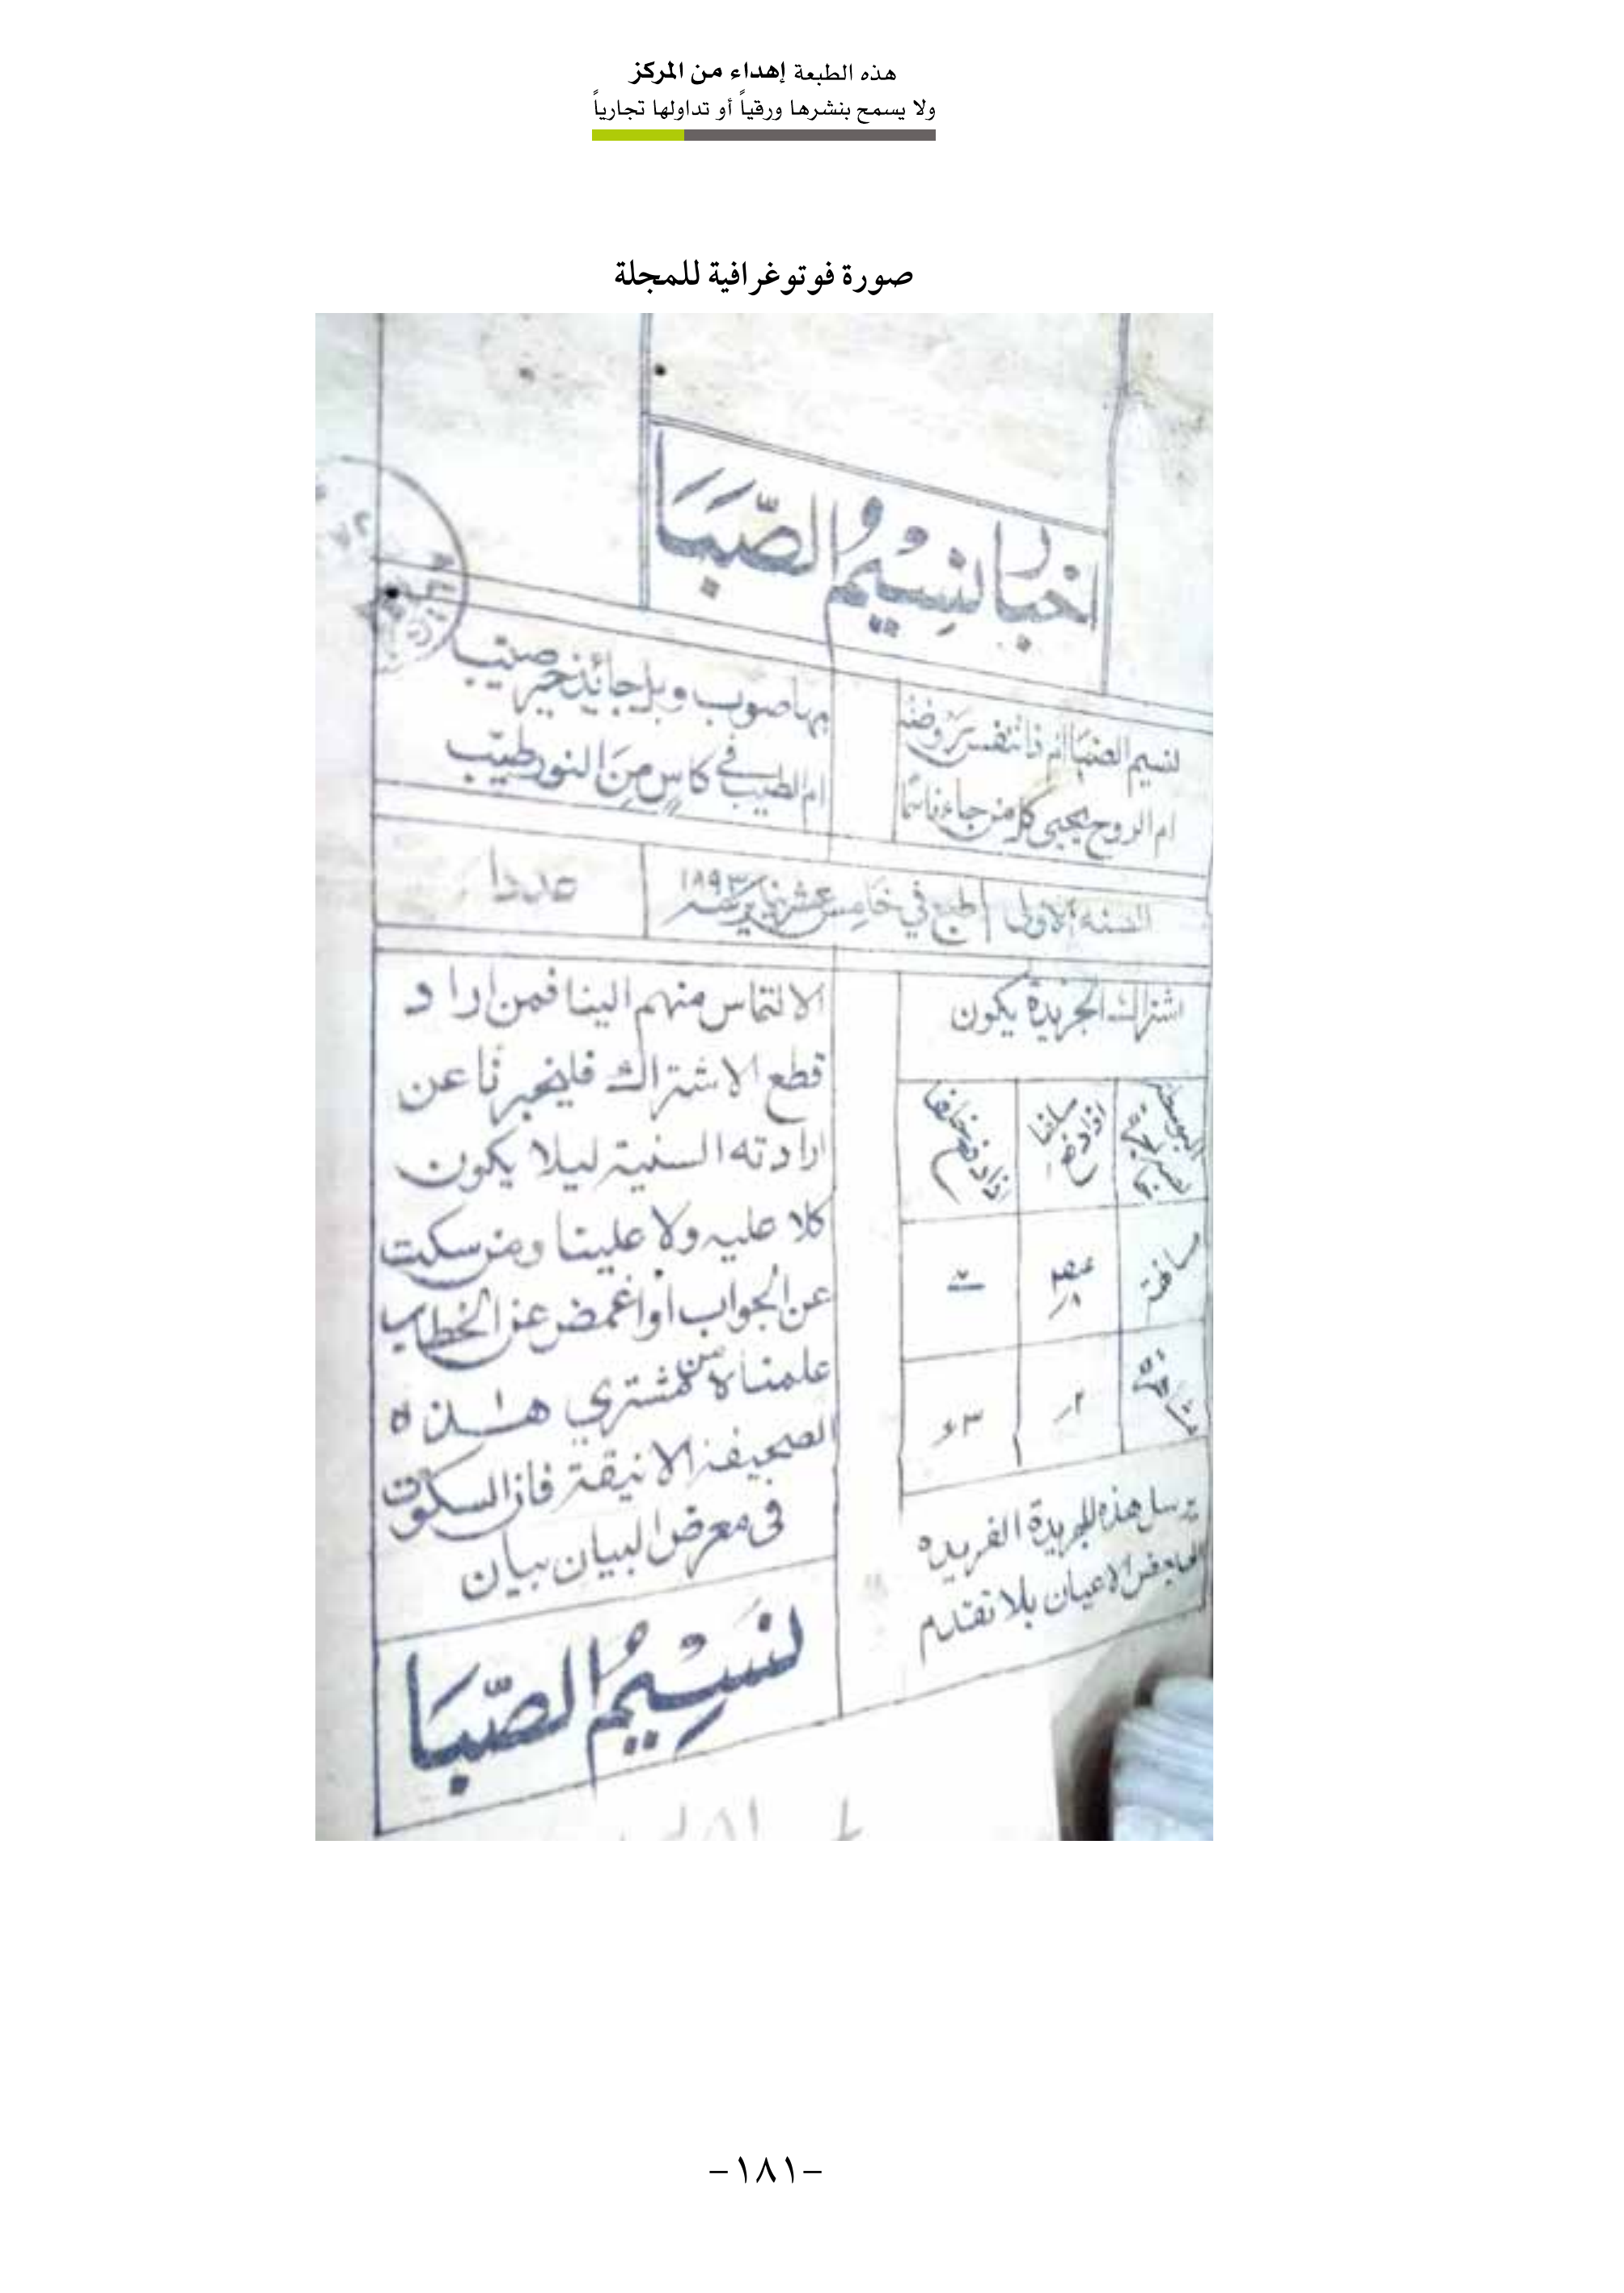 هذه الطبعة إهداء من المركز
ولا يسمح بنشرها ورقياً أو تداولها تجارياً
صورة فوتوغرافية للمجلة
اخبار نسِيمُ الصّبَا
نسيم الصبا ام ذا تنفس روضه
بها صوب وبل جائذ خير صيّب
ام الروح يحيى كل من جاء
ام الطيب في كاسٍ مِنَ النور طيّب
السنه الاولى
طبع في خامس عشر يناير سنه ١٨٩٣
عدد ١
اشتراك الجريدة يكون
مسانهة
٣
٢
يرسل هذه الجريدة الفريده
الى بعض الاعيان بلا تقدم
الالتماس منهم الينا فمن اراد
قطع الاشتراك فليخبرنا عن
ارادته السنية ليلا يكون
كلا عليه ولا علينا ومن سكت
عن الجواب أو اغمض عن الخطاب
علمناه من مشتري هذه
الصحيفة الانيقة فان السكوت
فى معرض البيان بيان
نسِيمُ الصّبَا
-١٨١-